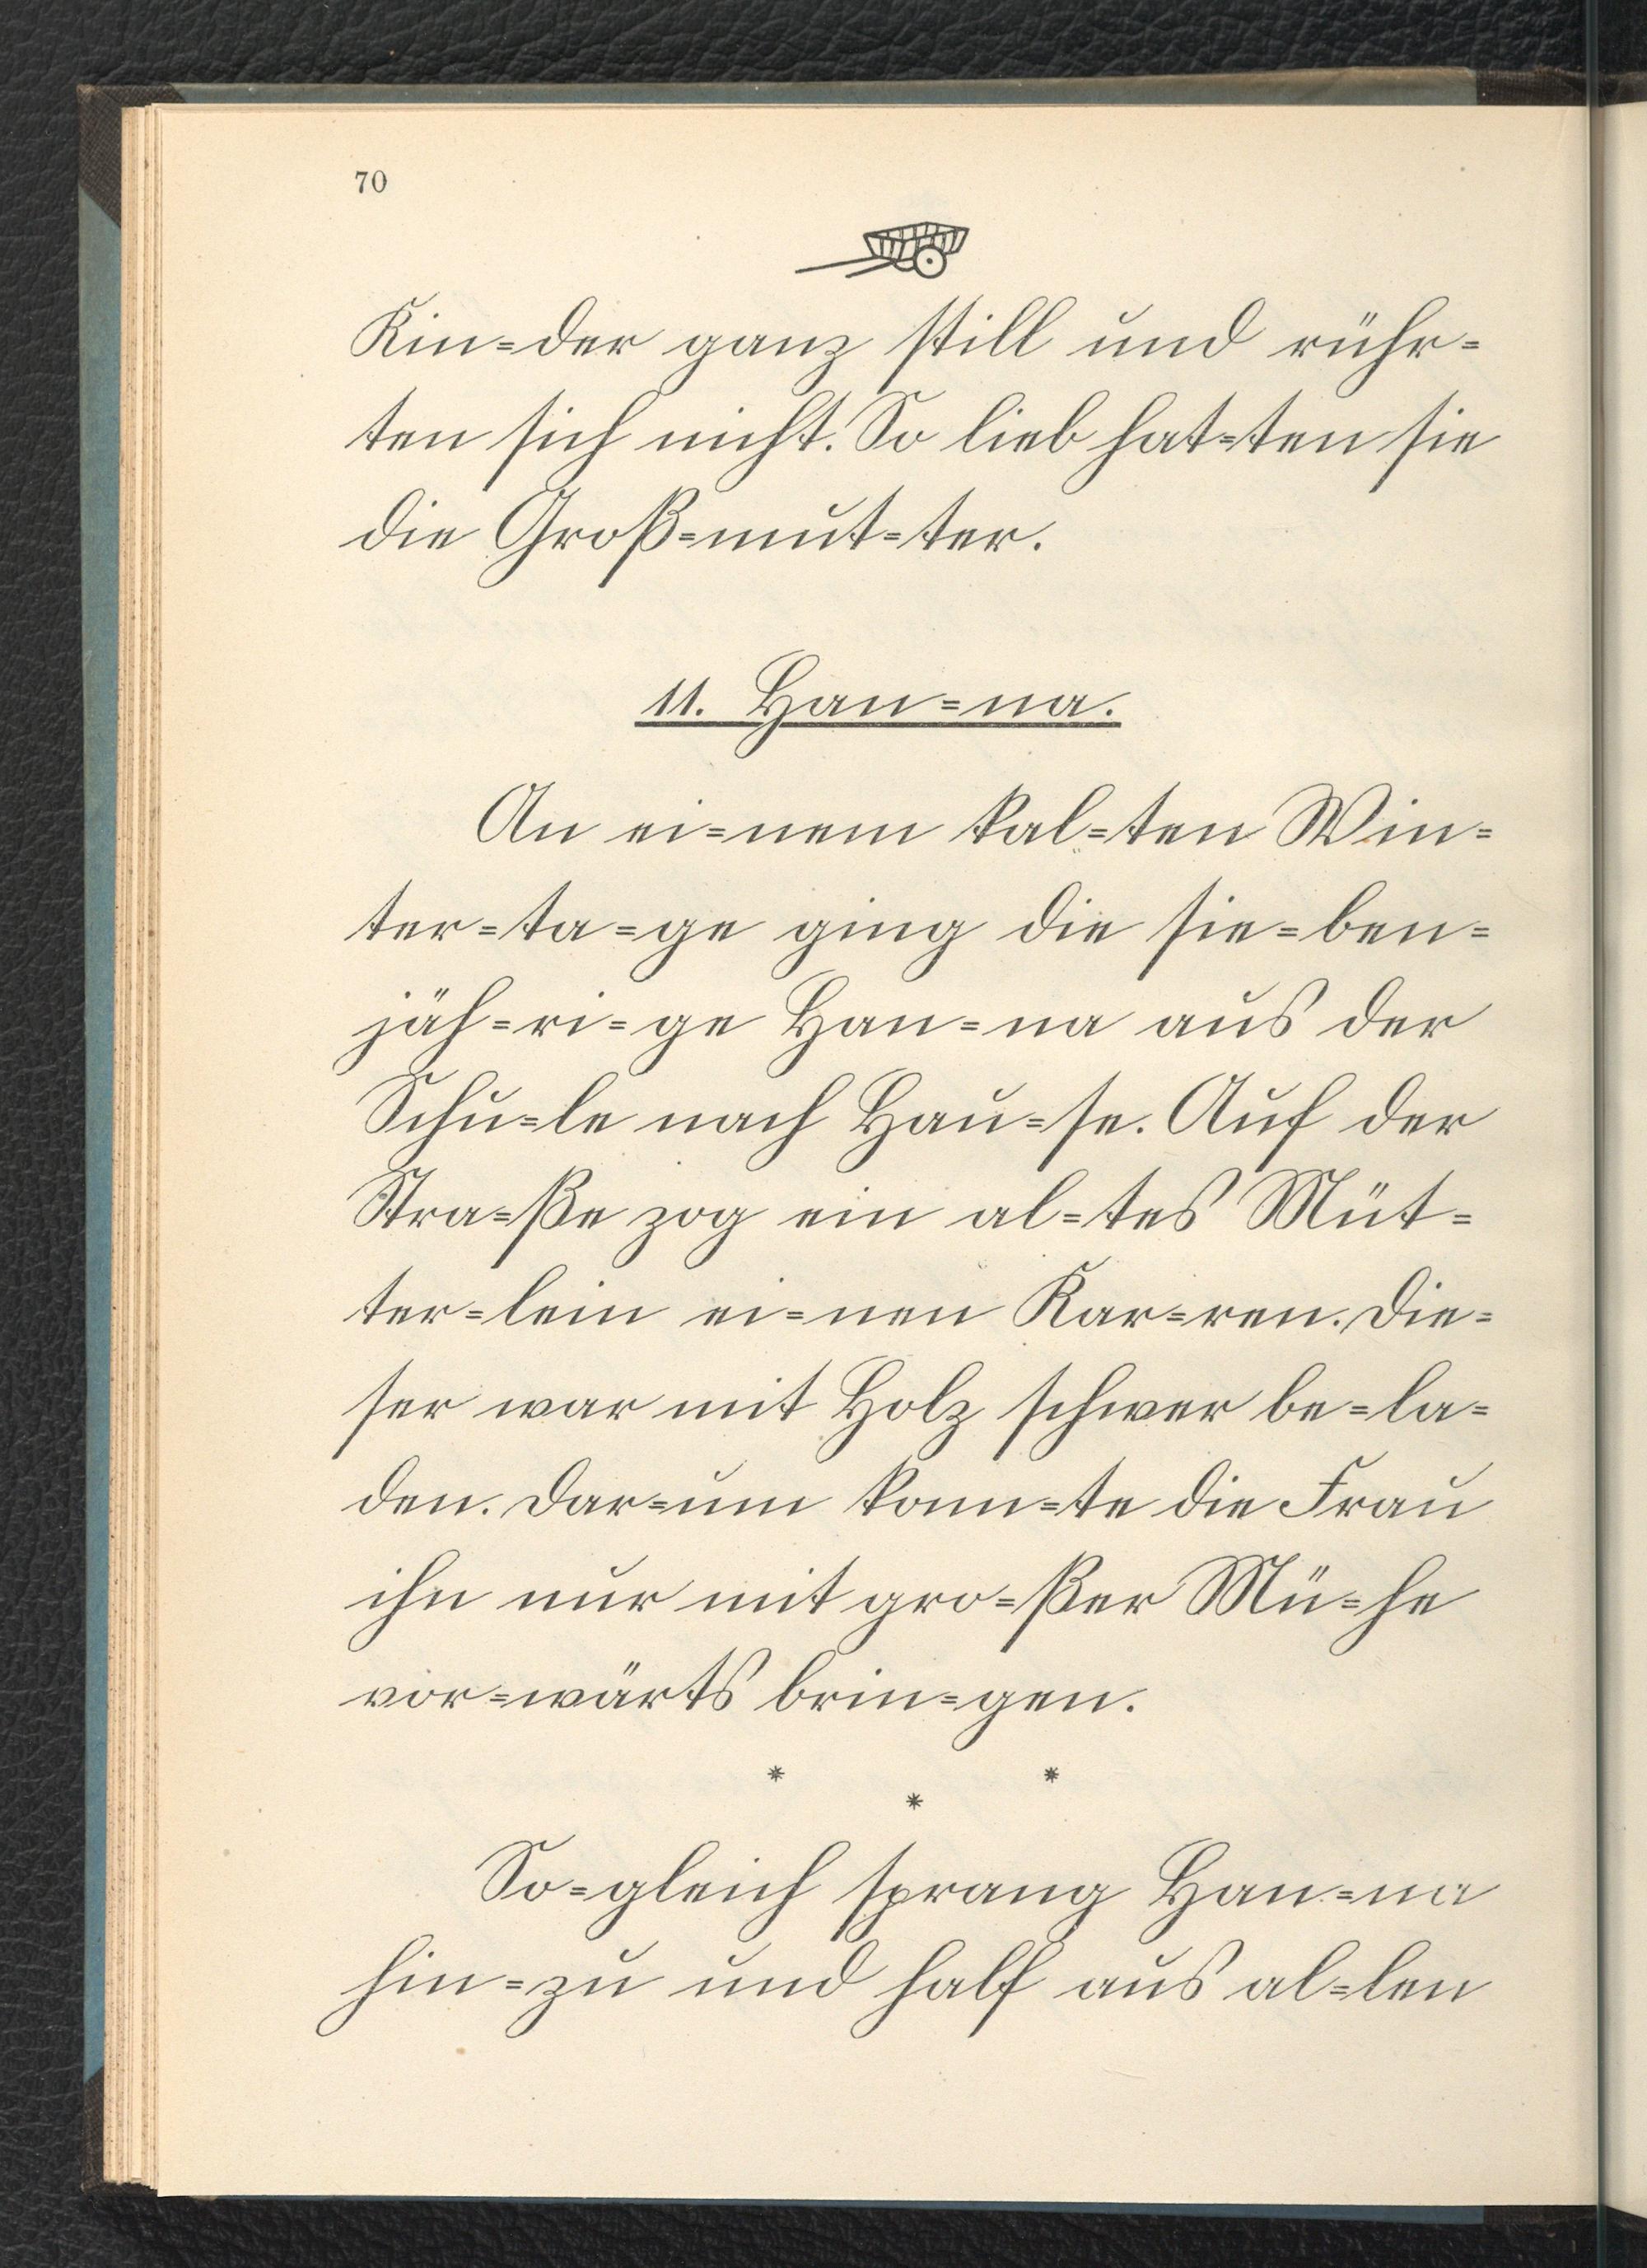 70
Kin=der ganz still und rühr=
ten sich nicht. So lieb hat=ten sie
die Groß=mut=ter.
11. Han=na.
An ei=nem kal=ten Win=
ter=ta=ge ging die sie=ben=
jäh=ri=ge Han=na aus der
Schu=le nach Hau=se. Auf der
Stra=ße zog ein al=tes Müt=
ter=lein ei=nen Kar=ren. Die=
ser war mit Holz schwer be=la=
den. Dar=um konn=te die Frau
ihn nur mit gro=ßer Mü=he
vor=wärts brin=gen.
* * *
So=gleich sprang Han=na
hin=zu und half aus al=len